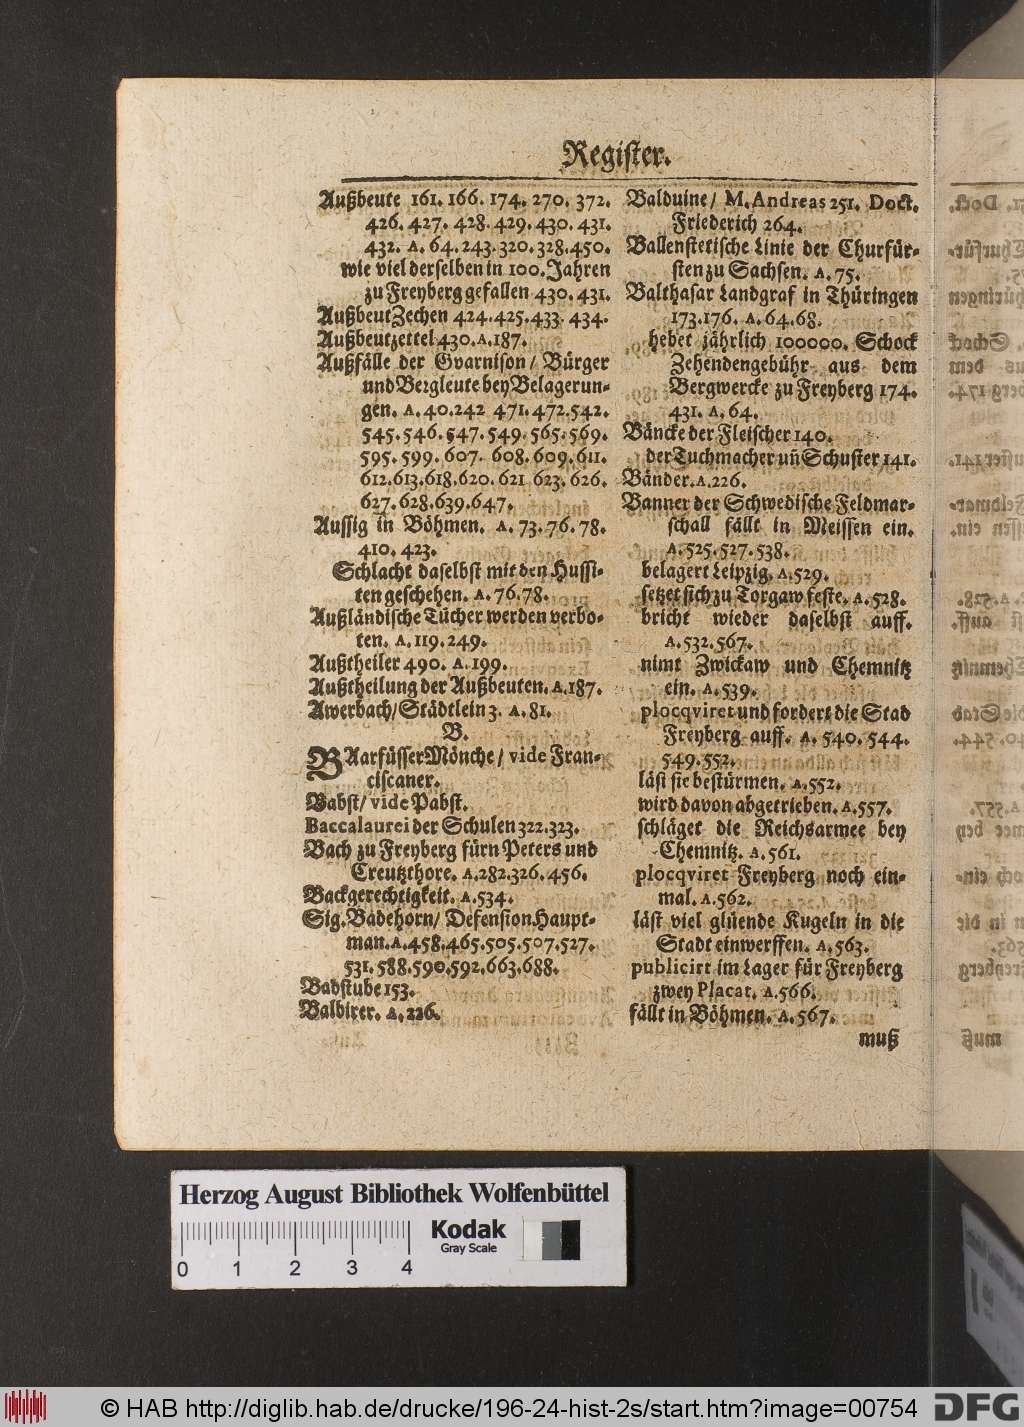 Register.
Außbeute 161. 166. 174. 270. 372.
426. 427. 428. 429. 430. 431.
432. A. 64. 243. 320. 328. 450.
wie viel derselben in 100. Jahren
zu Freyberg gefallen 430. 431.
AußbeutZechen 424. 425. 433. 434.
Außbeutzettel 430. A. 187.
Außfälle der Gvarnison/ Bürger
und Bergleute bey Belagerun-
gen. A. 40. 242 471. 472. 542.
545. 546. 547. 549. 565. 569.
595. 599. 607. 608. 609. 611.
612. 613. 618. 620. 621 623. 626.
627. 628. 639. 647.
Aussig in Böhmen. A. 73. 76. 78.
410. 423.
Schlacht daselbst mit den Hussi-
ten geschehen. A. 76. 78.
Außländische Tücher werden verbo-
ten. A. 119. 249.
Außtheiler 490. A. 199.
Außtheilung der Außbeuten. A. 187.
Awerbach/ Städtlein 3. A. 81.
B.
BAarfüsser Mönche/ vide Fran-
ciscaner.
Babst/ vide Pabst.
Baccalaurei der Schulen 322. 323.
Bach zu Freyberg fürn Peters und
Creutzthore. A. 282. 326. 456.
Backgerechtigkeit. A. 534.
Sig. Badehorn/ Defension Haupt-
man. A. 458. 465. 505. 507. 527.
531. 588. 590. 592. 663. 688.
Badstube 153.
Balbirer. A. 226.
Balduine/ M. Andreas 251. Doct.
Friederich 264.
Ballenstetische Linie der Churfür-
sten zu Sachsen. A. 75.
Balthasar Landgraf in Thüringen
173. 176. A. 64. 68.
hebet jährlich 100000. Schock
Zehendengebühr aus dem
Bergwercke zu Freyberg 174.
431. A. 64.
Bäncke der Fleischer 140.
der Tuchmacher uñ Schuster 141.
Bänder. A. 226.
Banner der Schwedische Feldmar-
schall fällt in Meissen ein.
A. 525. 527. 538.
belagert Leipzig. A. 529.
setzet sich zu Torgaw feste. A. 528.
bricht wieder daselbst auff.
A. 532. 567.
nimt Zwickaw und Chemnitz
ein. A. 539.
plocqviret und fordert die Stad
Freyberg auff. A. 540. 544.
549. 552.
läst sie bestürmen. A. 552.
wird davon abgetrieben. A. 557.
schläget die Reichsarmee bey
Chemnitz. A. 561.
plocqviret Freyberg noch ein-
mal. A. 562.
läst viel glüende Kugeln in die
Stadt einwerffen. A. 563.
publicirt im Lager für Freyberg
zwey Placat. A. 566.
fällt in Böhmen. A. 567.
muß
Herzog August Bibliothek Wolfenbüttel
Kodak
Gray Scale
0 1 2 3 4
© HAB http://diglib.hab.de/drucke/196-24-hist-2s/start.htm?image=00754
DFG